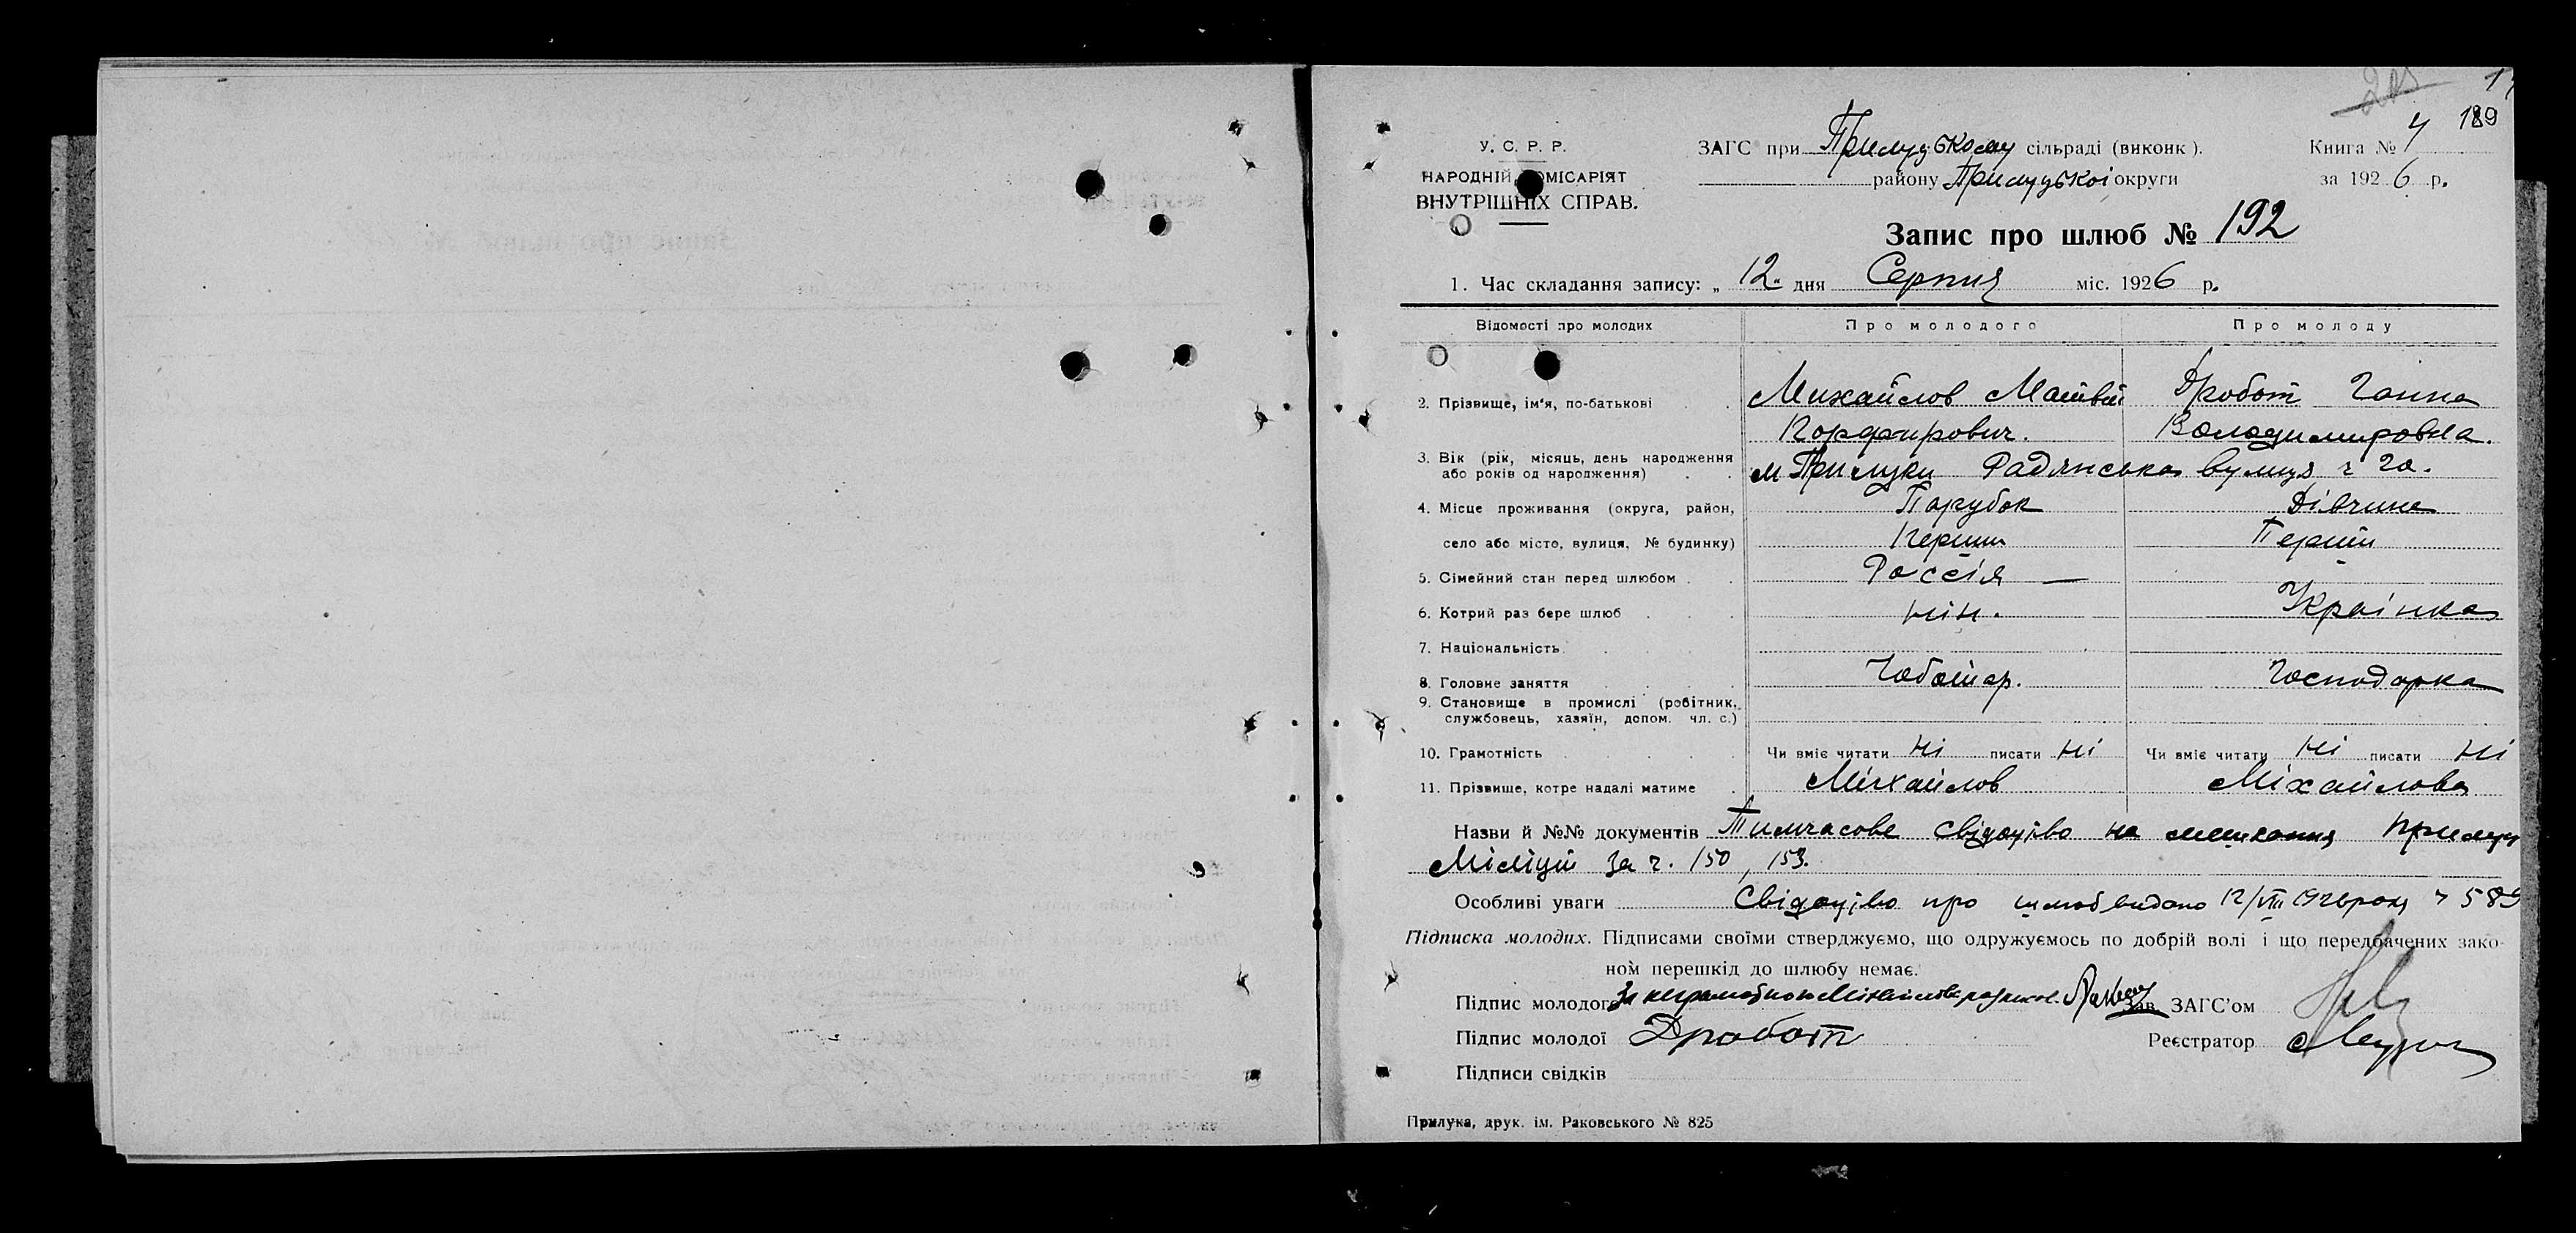 189
У. С. Р. Р.
НАРОДНІЙ КОМІСАРІЯТ
ВНУТРІШНІХ СПРАВ.
ЗАГС при Прилуцькому сільраді (виконк ).
району Прилуцької округи
Книга № 4
за 1926 р.
Запис про шлюб № 192
1. Час складання запису: „ 12 " дня Серпня міс. 1926 р.
Відомості про молодих Про молодого Про молоду
2. Прізвище, ім'я, по-батькові Михайлов Матвій Дробот Ганна
Порфирович. Володимировна.
3. Вік (рік, місяць, день народження
або років од народження) м Прилуки Радянська вулиця ч 20.
4. Місце проживання (округа, район, Парубок Дівчина
село або місто, вулиця, № будинку) Перший Перший
5. Сімейний стан перед шлюбом Россія —
6. Котрий раз бере шлюб нін. Українка
7. Національність
8. Головне заняття Чоботар. Господарка
9. Становище в промислі (робітник,
службовець, хазяїн, допом. чл. с.)
10. Грамотність Чи вміє читати Ні писати Ні Чи вміє читати Ні писати Ні
11. Прізвище, котре надалі матиме Міхайлов Міхайлова
Назви й №№ документів Тимчасове свідоцтво на мешкання Прилуц
Міліції за ч. 150, 153.
Особливі уваги Свідоцтво про шлюб видано 12/VIII 1926 року ч 589
Підписка молодих. Підписами своїми стверджуємо, що одружуємось по добрій волі і що передбачених зако-
ном перешкід до шлюбу немає.
Підпис молодого За неграмотного Міхайлова розписав.
Зав. ЗАГС'ом
Підпис молодої Дробот
Реєстратор
Підписи свідків
Прилука, друк. ім. Раковського № 825